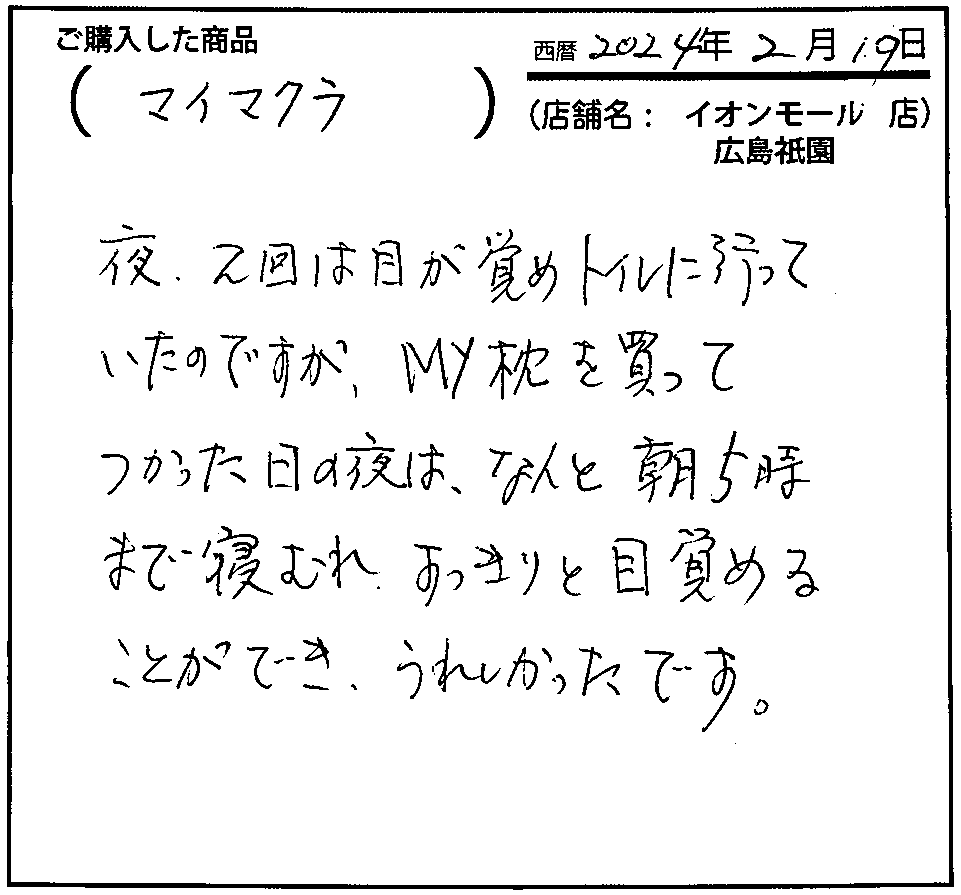 ご購入した商品
(マイマクラ)
西暦 2024年 2月 19日
(店舗名： イオンモール 店)
広島祇園
夜、2回は目が覚めトイレに行って
いたのですが、MY枕を買って
つかった日の夜は、なんと朝5時
まで寝むれ、すっきりと目覚める
ことができ、うれしかったです。